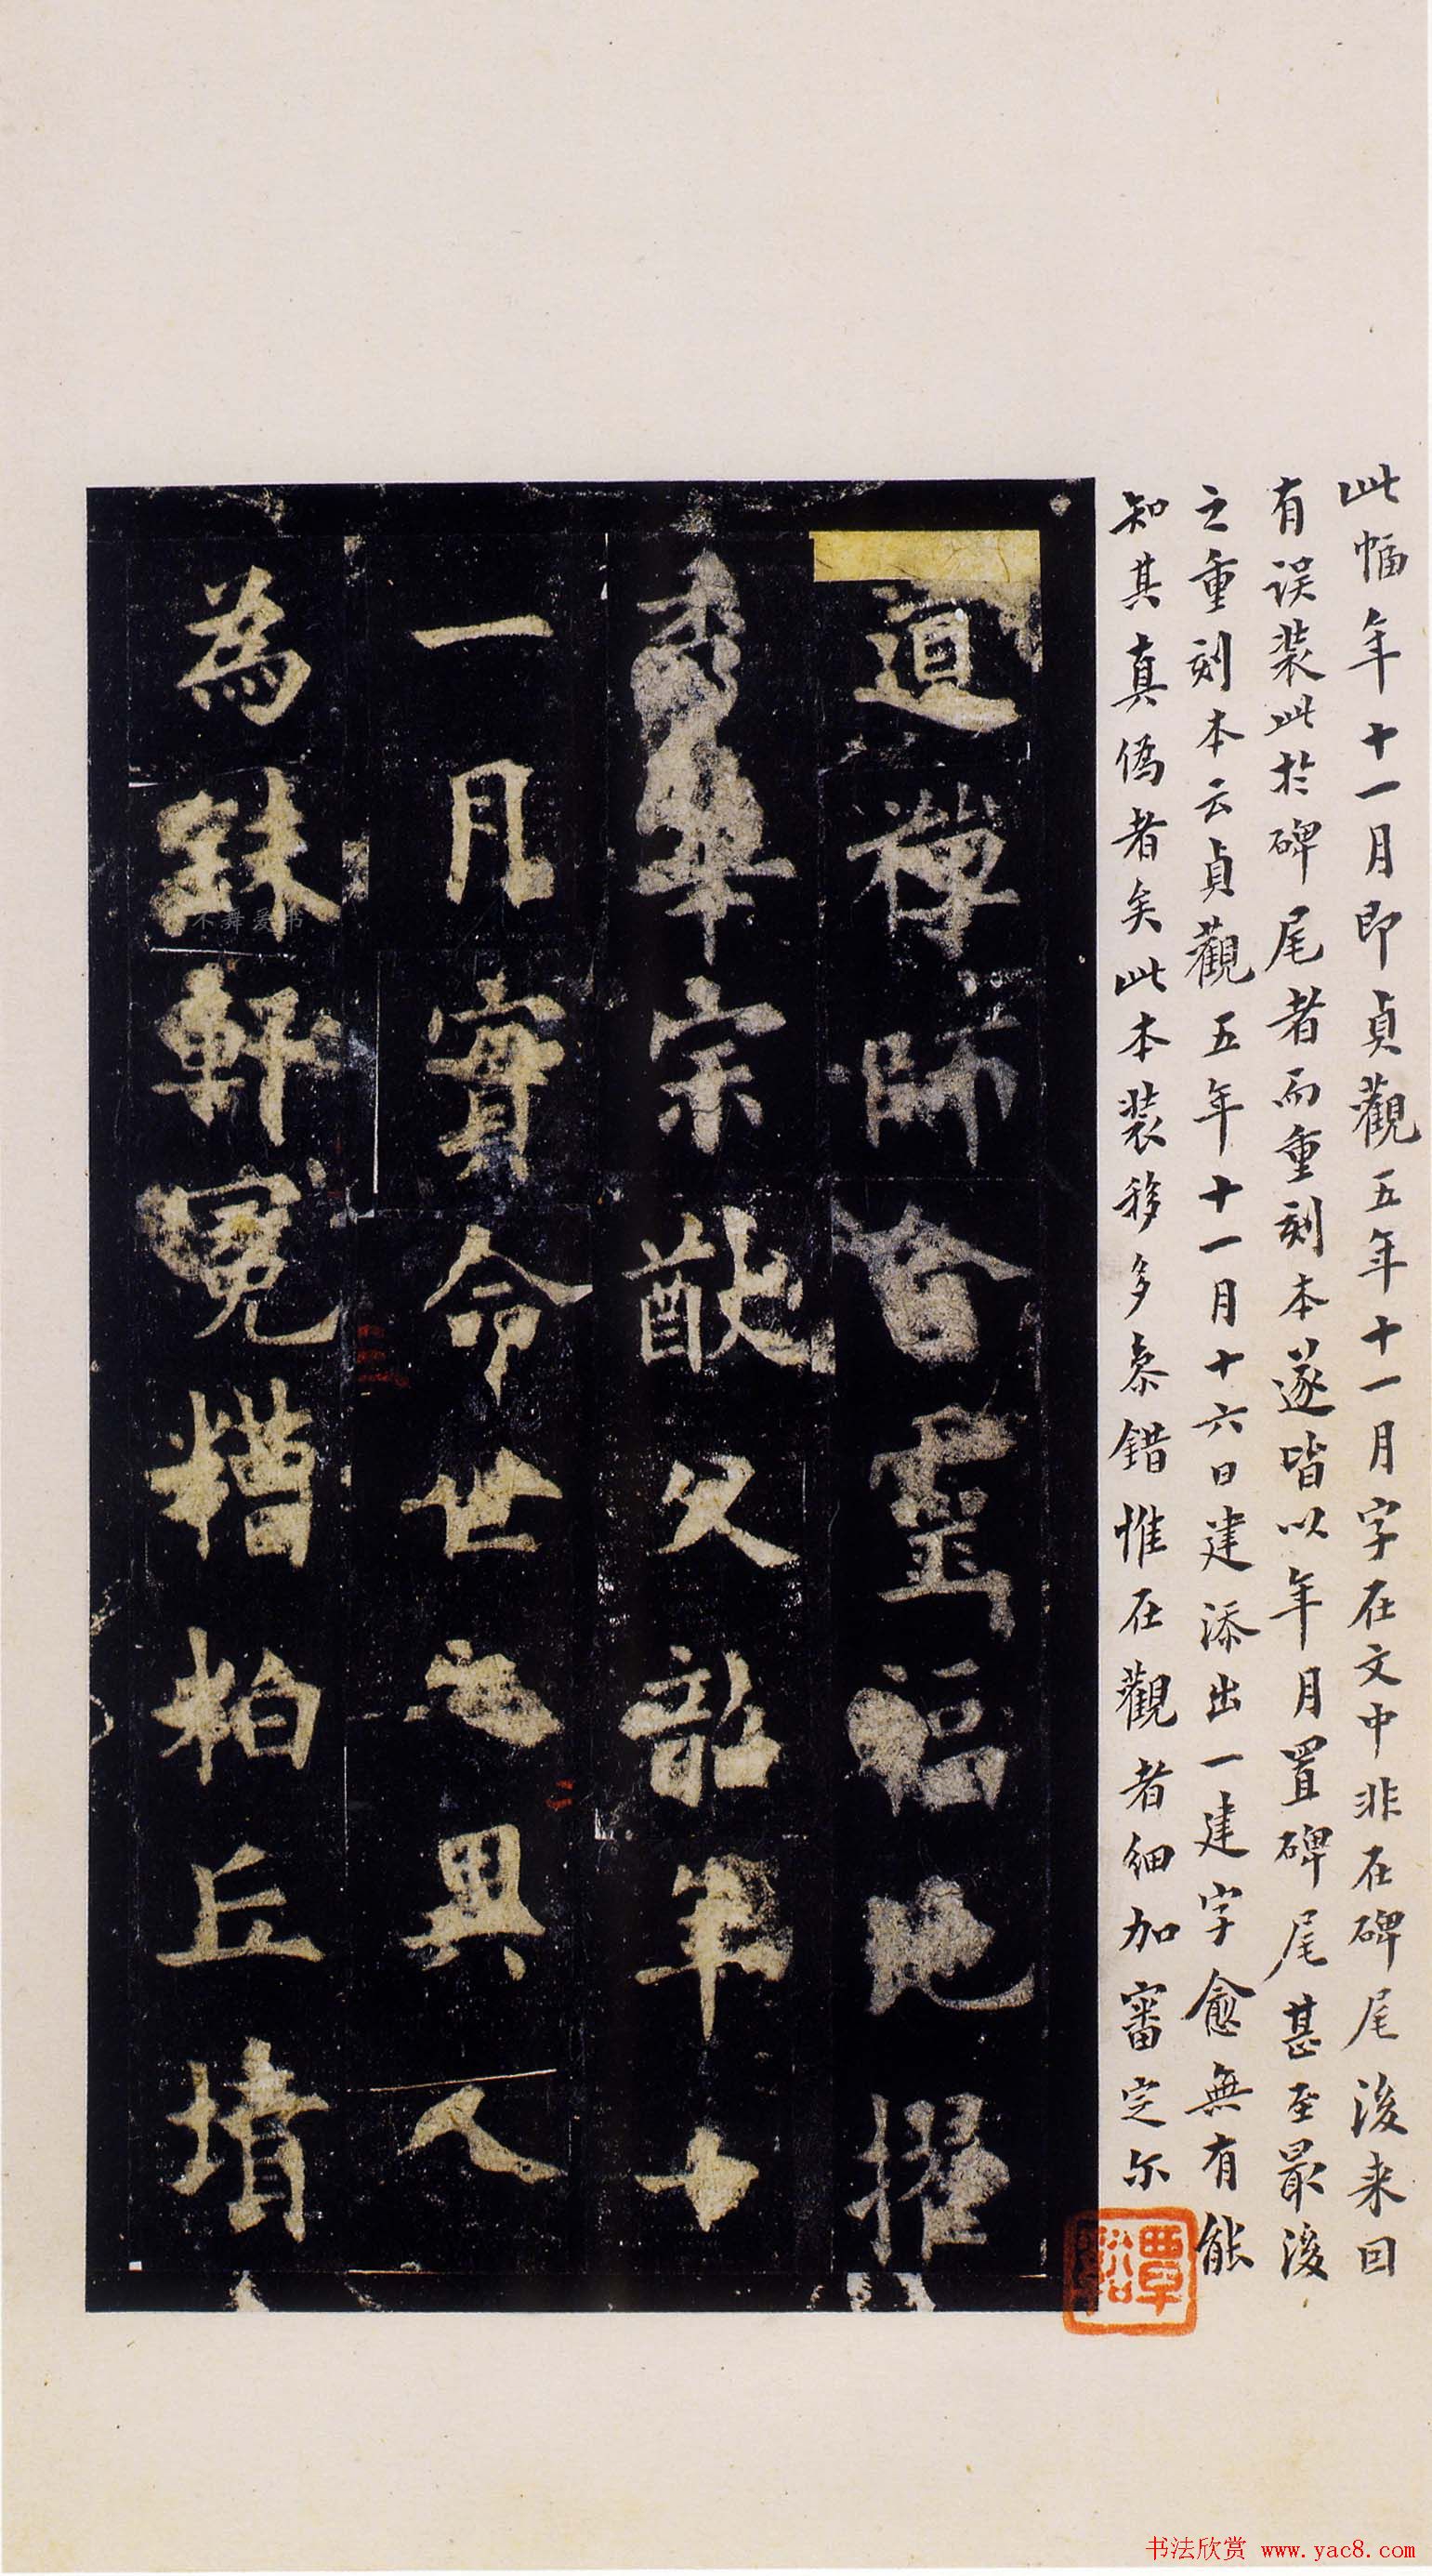 此幅年十一月即貞觀五年十一月字在文中非在碑尾後来因
有误装此於碑尾者而重刻本遂皆以年月置碑尾甚至最後
之重刻本云貞觀五年十一月十六日建添出一建字愈無有能
知其真偽者矣此本装移多条錯惟在觀者细加審定尔
覃谿
道禅師昔靈福地擢
秀華宗猷父韶年十
一月實命世之異人
為銖軒冕糟粕丘墳
不舞爱书
书法欣赏 www.yac8.com